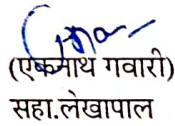 (एकनाथ गवारी)
सहा.लेखापाल